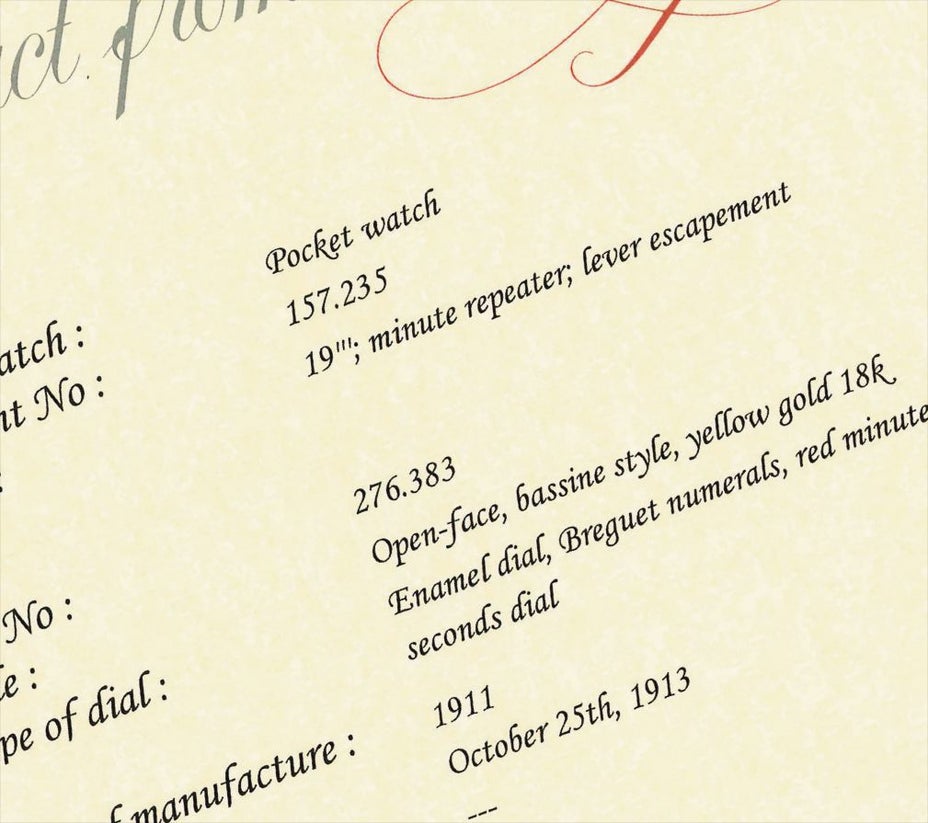 act from
Pocket watch
atch :
157.235
nt No :
19'''; minute repeater; lever escapement
:
276.383
No :
Open-face, bassine style, yellow gold 18k
e :
Enamel dial, Breguet numerals, red minute
pe of dial :
seconds dial
1911
f manufacture :
October 25th, 1913
---